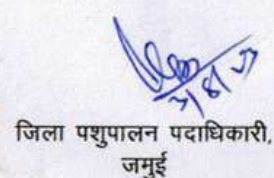 जिला पशुपालन पदाधिकारी,
जमुई